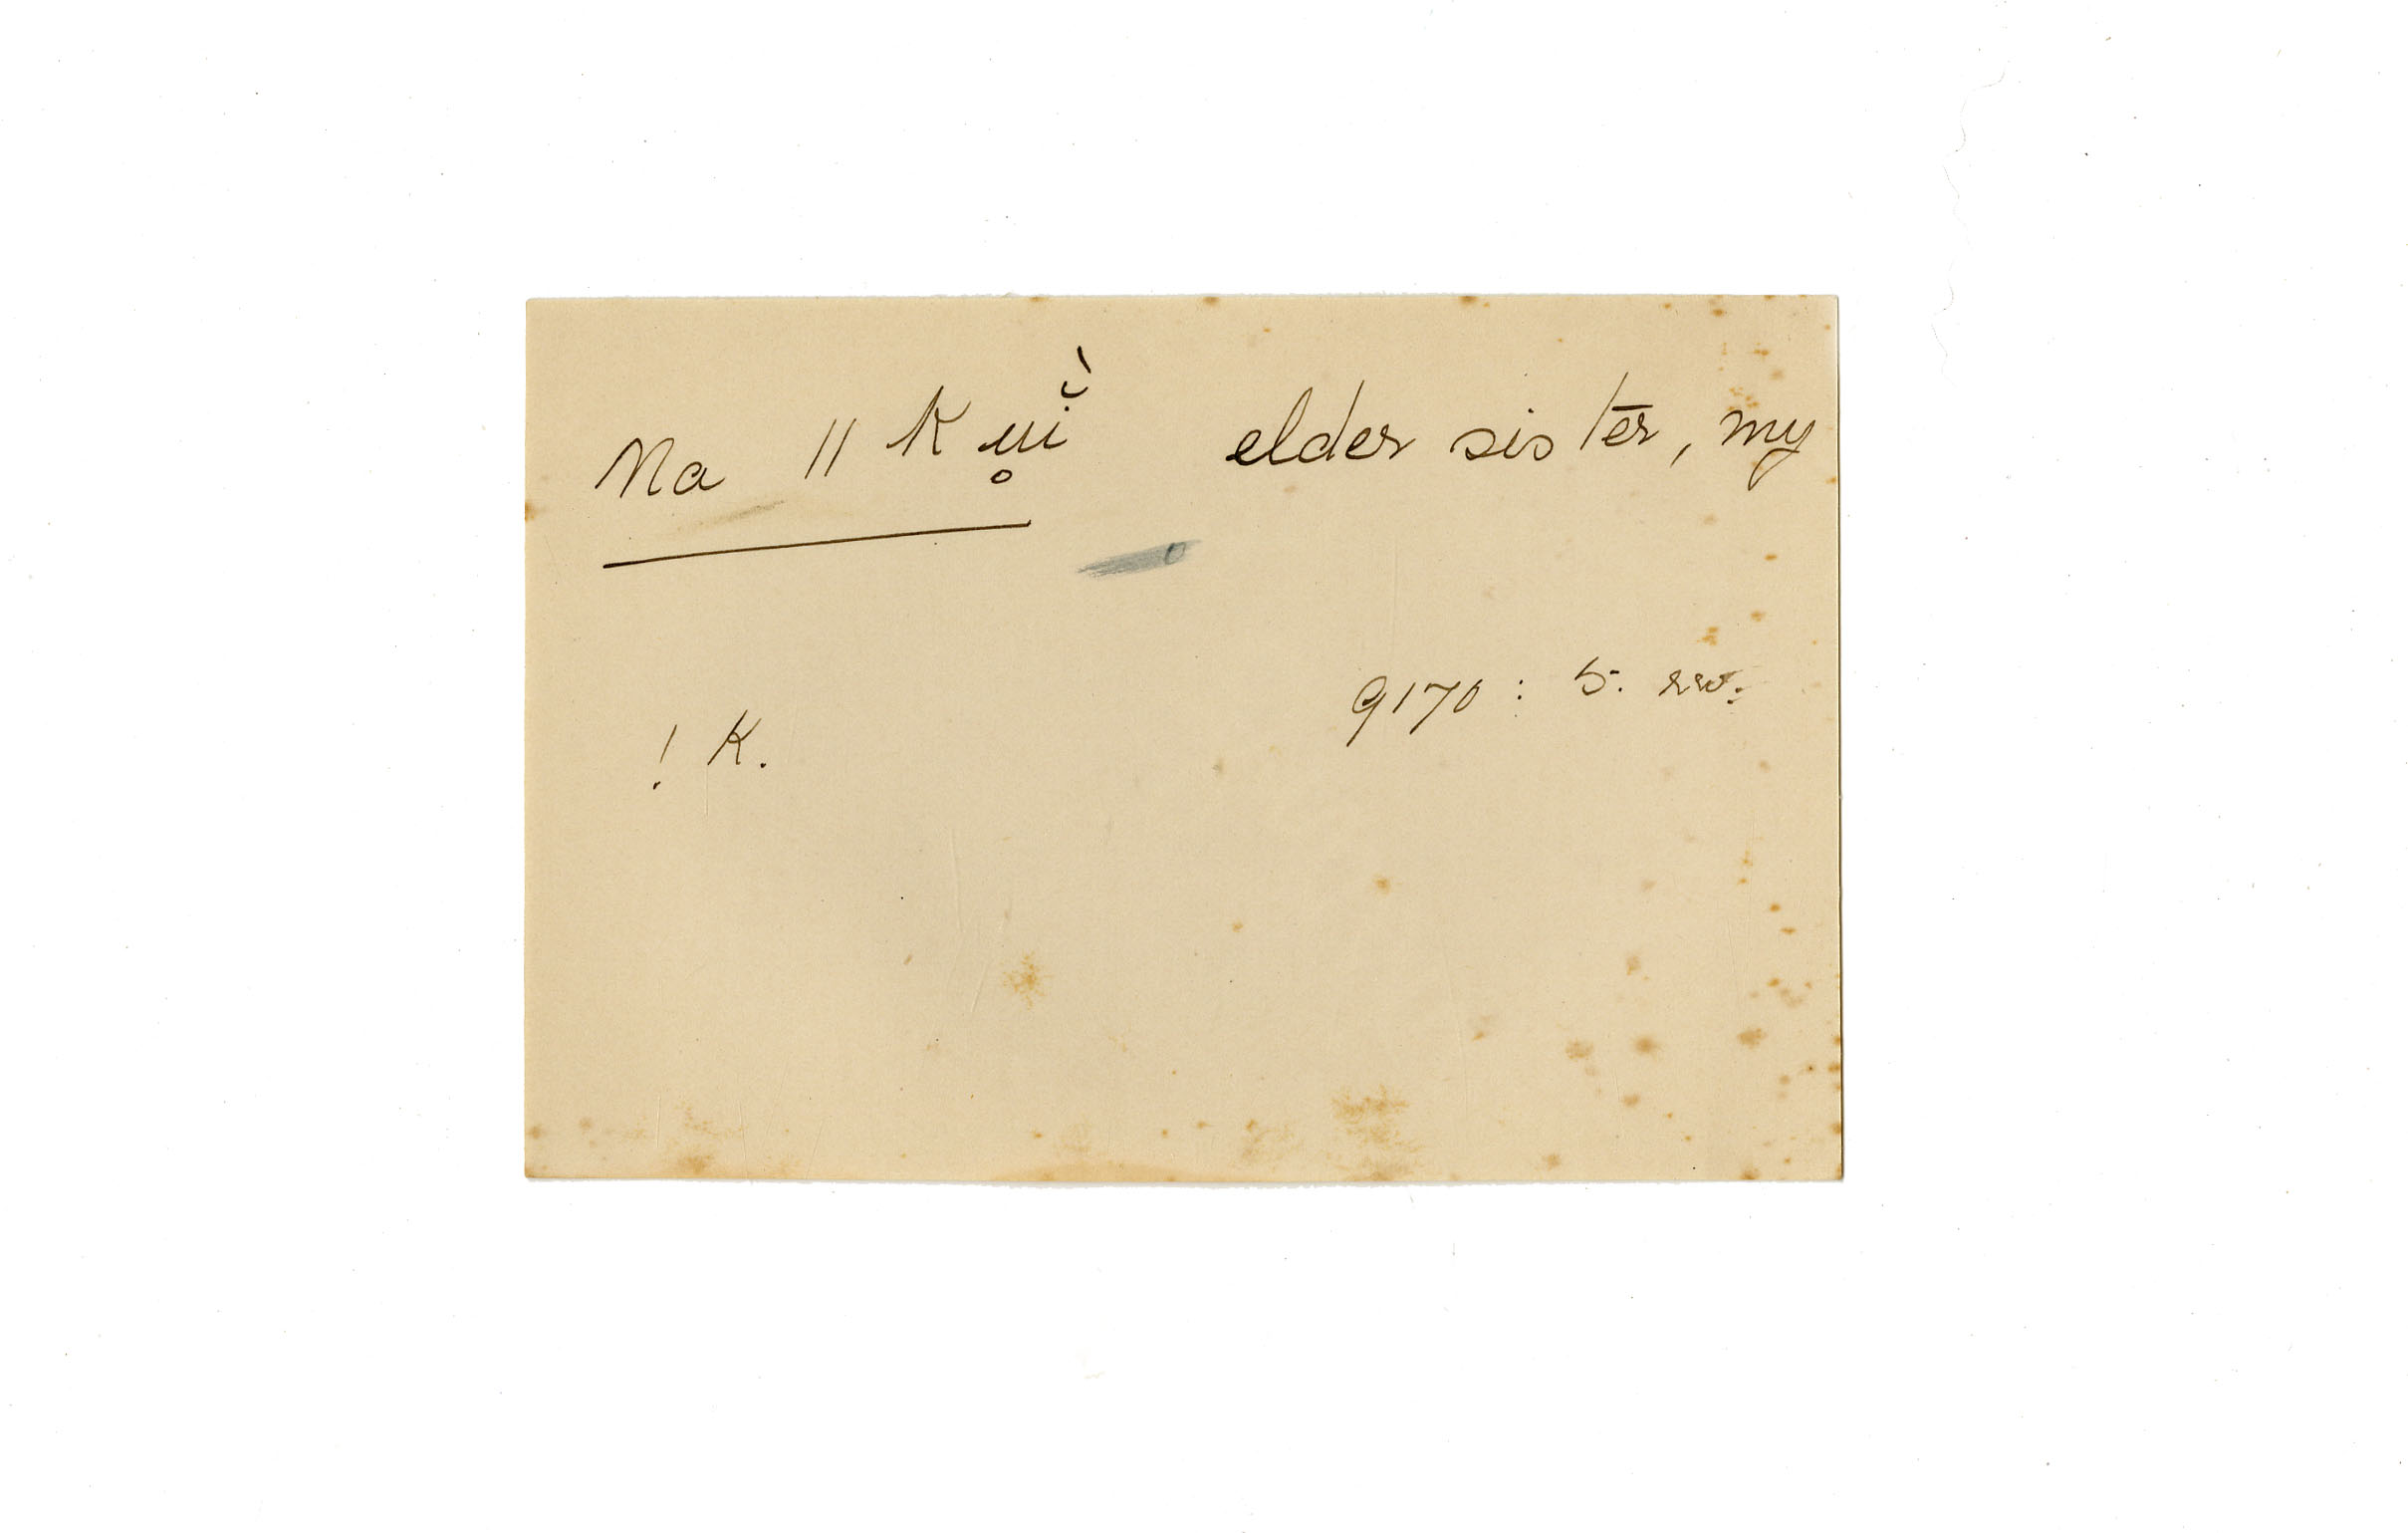 Na ǁkụĭ̥̀ elder sister, my
9170 : 5. rev.
! K.